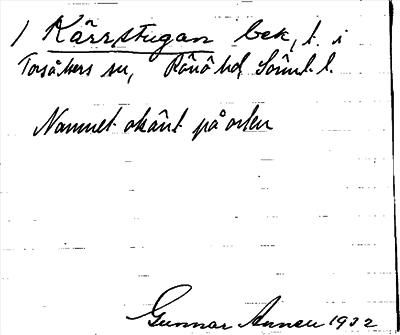 ) Kärrstugan bek, t. i
Torsåkers sn, Rönö hd Sörml. l.
Namnet okänt på orten
Gunnar Annell 1932